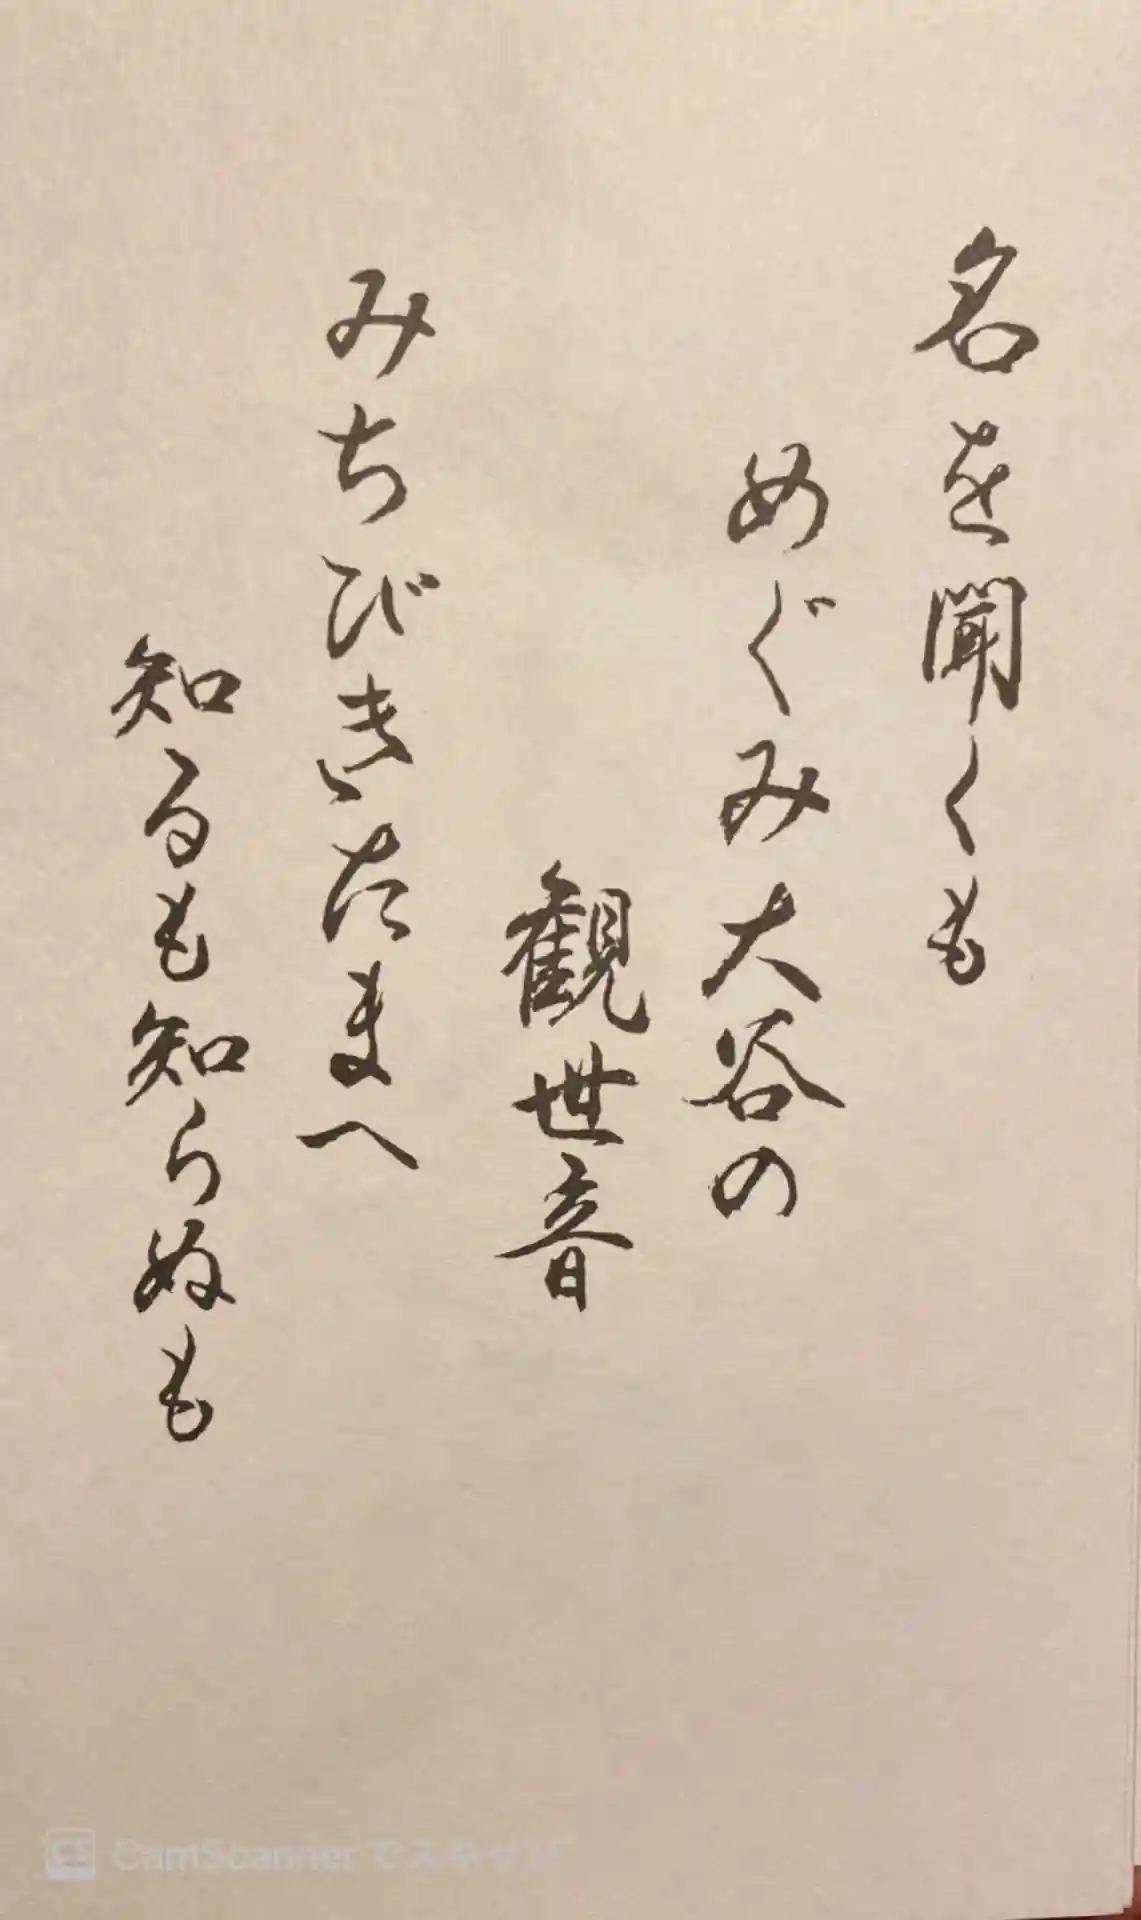 名を聞くも
めぐみ大谷の
観世音
みちびきたまへ
知るも知らぬも
CamScannerでスキャン